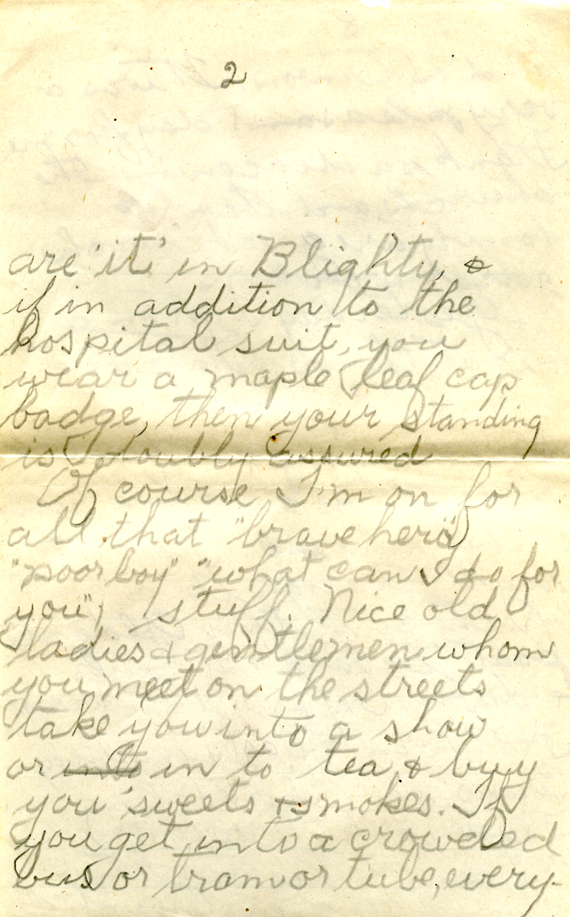 2
are 'it' in Blighty, &
if in addition to the
hospital suit, you
wear a maple leaf cap
badge, then your standing
is doubly assured
Of course I'm on for
all that "brave hero"
"poor boy" "what can I do for
you", stuff. Nice old
ladies & gentlemen whom
you meet on the streets
take you into a show
or into in to tea & buy
you sweets & smokes. If
you get into a crowded
bus or tram or tube, every-